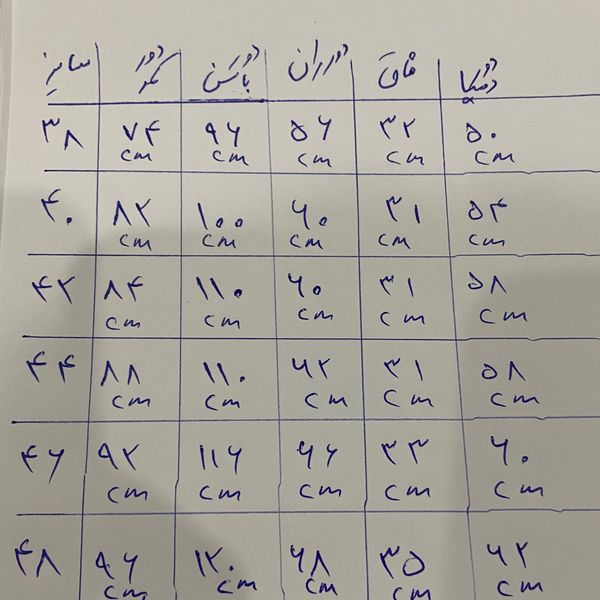 سایز دور کمر دور باسن دور ران فاق دور دمپا
۳۸ ۷۴ ۹۶ ۵۶ ۳۲ ۵۰
cm cm cm cm cm
۴۰ ۸۲ ۱۰۰ ۶۰ ۳۱ ۵۴
cm cm cm cm cm
۴۲ ۸۴ ۱۱۰ ۶۰ ۳۱ ۵۸
cm cm cm cm cm
۴۴ ۸۸ ۱۱۰ ۶۲ ۳۱ ۵۸
cm cm cm cm cm
۴۶ ۹۲ ۱۱۶ ۶۶ ۳۳ ۶۰
cm cm cm cm cm
۴۸ ۹۶ ۱۲۰ ۶۸ ۳۵ ۶۲
cm cm cm cm cm